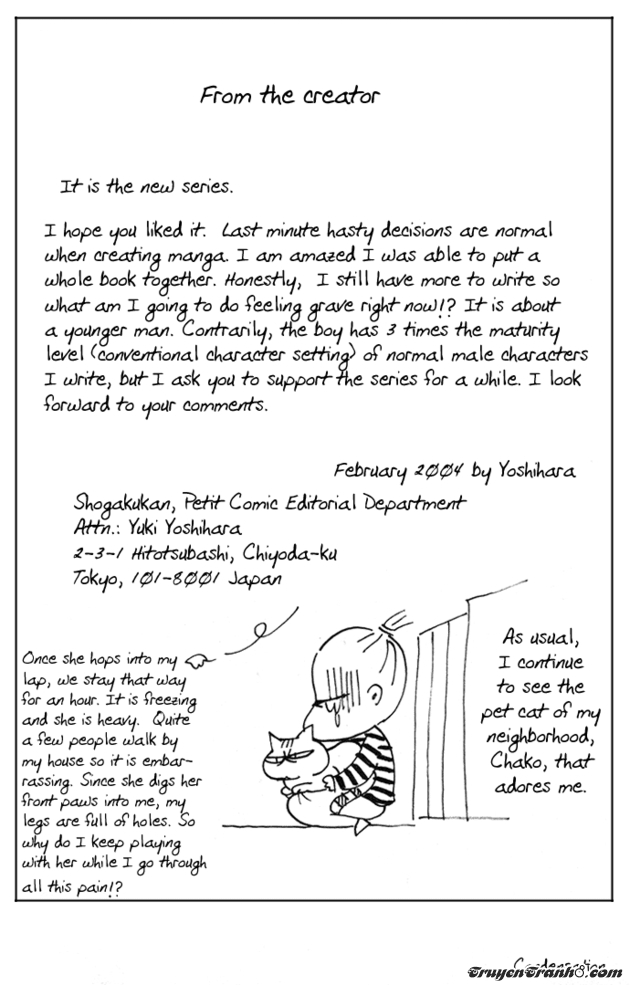 From the creator
It is the new series.
I hope you liked it. Last minute hasty decisions are normal
when creating manga. I am amazed I was able to put a
whole book together. Honestly, I still have more to write so
what am I going to do feeling grave right now!? It is about
a younger man. Contrarily, the boy has 3 times the maturity
level (conventional character setting) of normal male characters
I write, but I ask you to support the series for a while. I look
forward to your comments.
February 2004 by Yoshihara
Shogakukan, Petit Comic Editorial Department
Attn.: Yuki Yoshihara
2-3-1 Hitotsubashi, Chiyoda-ku
Tokyo, 101-8001 Japan
As usual,
I continue
to see the
pet cat of my
neighborhood,
Chako, that
adores me.
Once she hops into my
lap, we stay that way
for an hour. It is freezing
and she is heavy. Quite
a few people walk by
my house so it is embar-
rassing. Since she digs her
front paws into me, my
legs are full of holes. So
why do I keep playing
with her while I go through
all this pain!?
TruyenTranh8.com